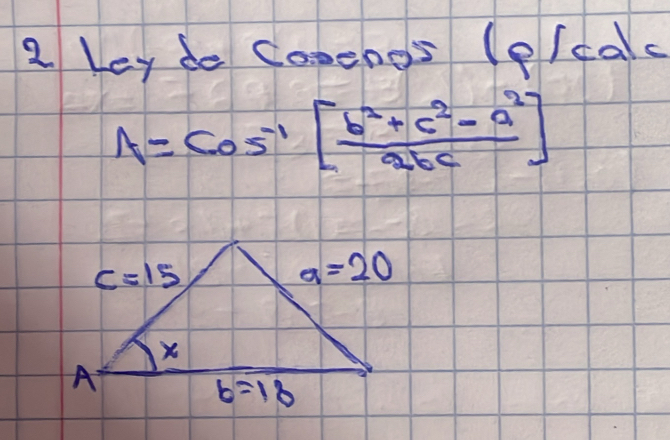 2 Ley de Cosenos (p/calc
A = Cos⁻¹ [ b² + c² - a² / 2bc ]
c=15 a=20
x
A
b=18